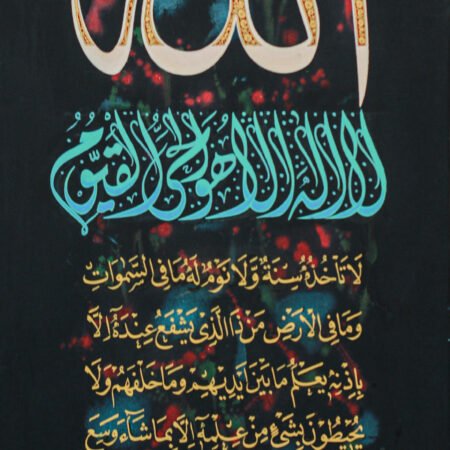 الله
لا اله الا هو الحي القيوم
لَا تَأْخُذُهُ سِنَةٌ وَّلَا نَوْمٌ لَهُ مَا فِي السَّمٰوَاتِ
وَمَا فِي الْاَرْضِ مَنْ ذَا الَّذِيْ يَشْفَعُ عِنْدَهُ اِلَّا
بِاِذْنِهٖ يَعْلَمُ مَا بَيْنَ اَيْدِيْهِمْ وَمَا خَلْفَهُمْ وَلَا
يُحِيْطُوْنَ بِشَيْءٍ مِنْ عِلْمِهٖ اِلَّا بِمَا شَاءَ وَسِعَ